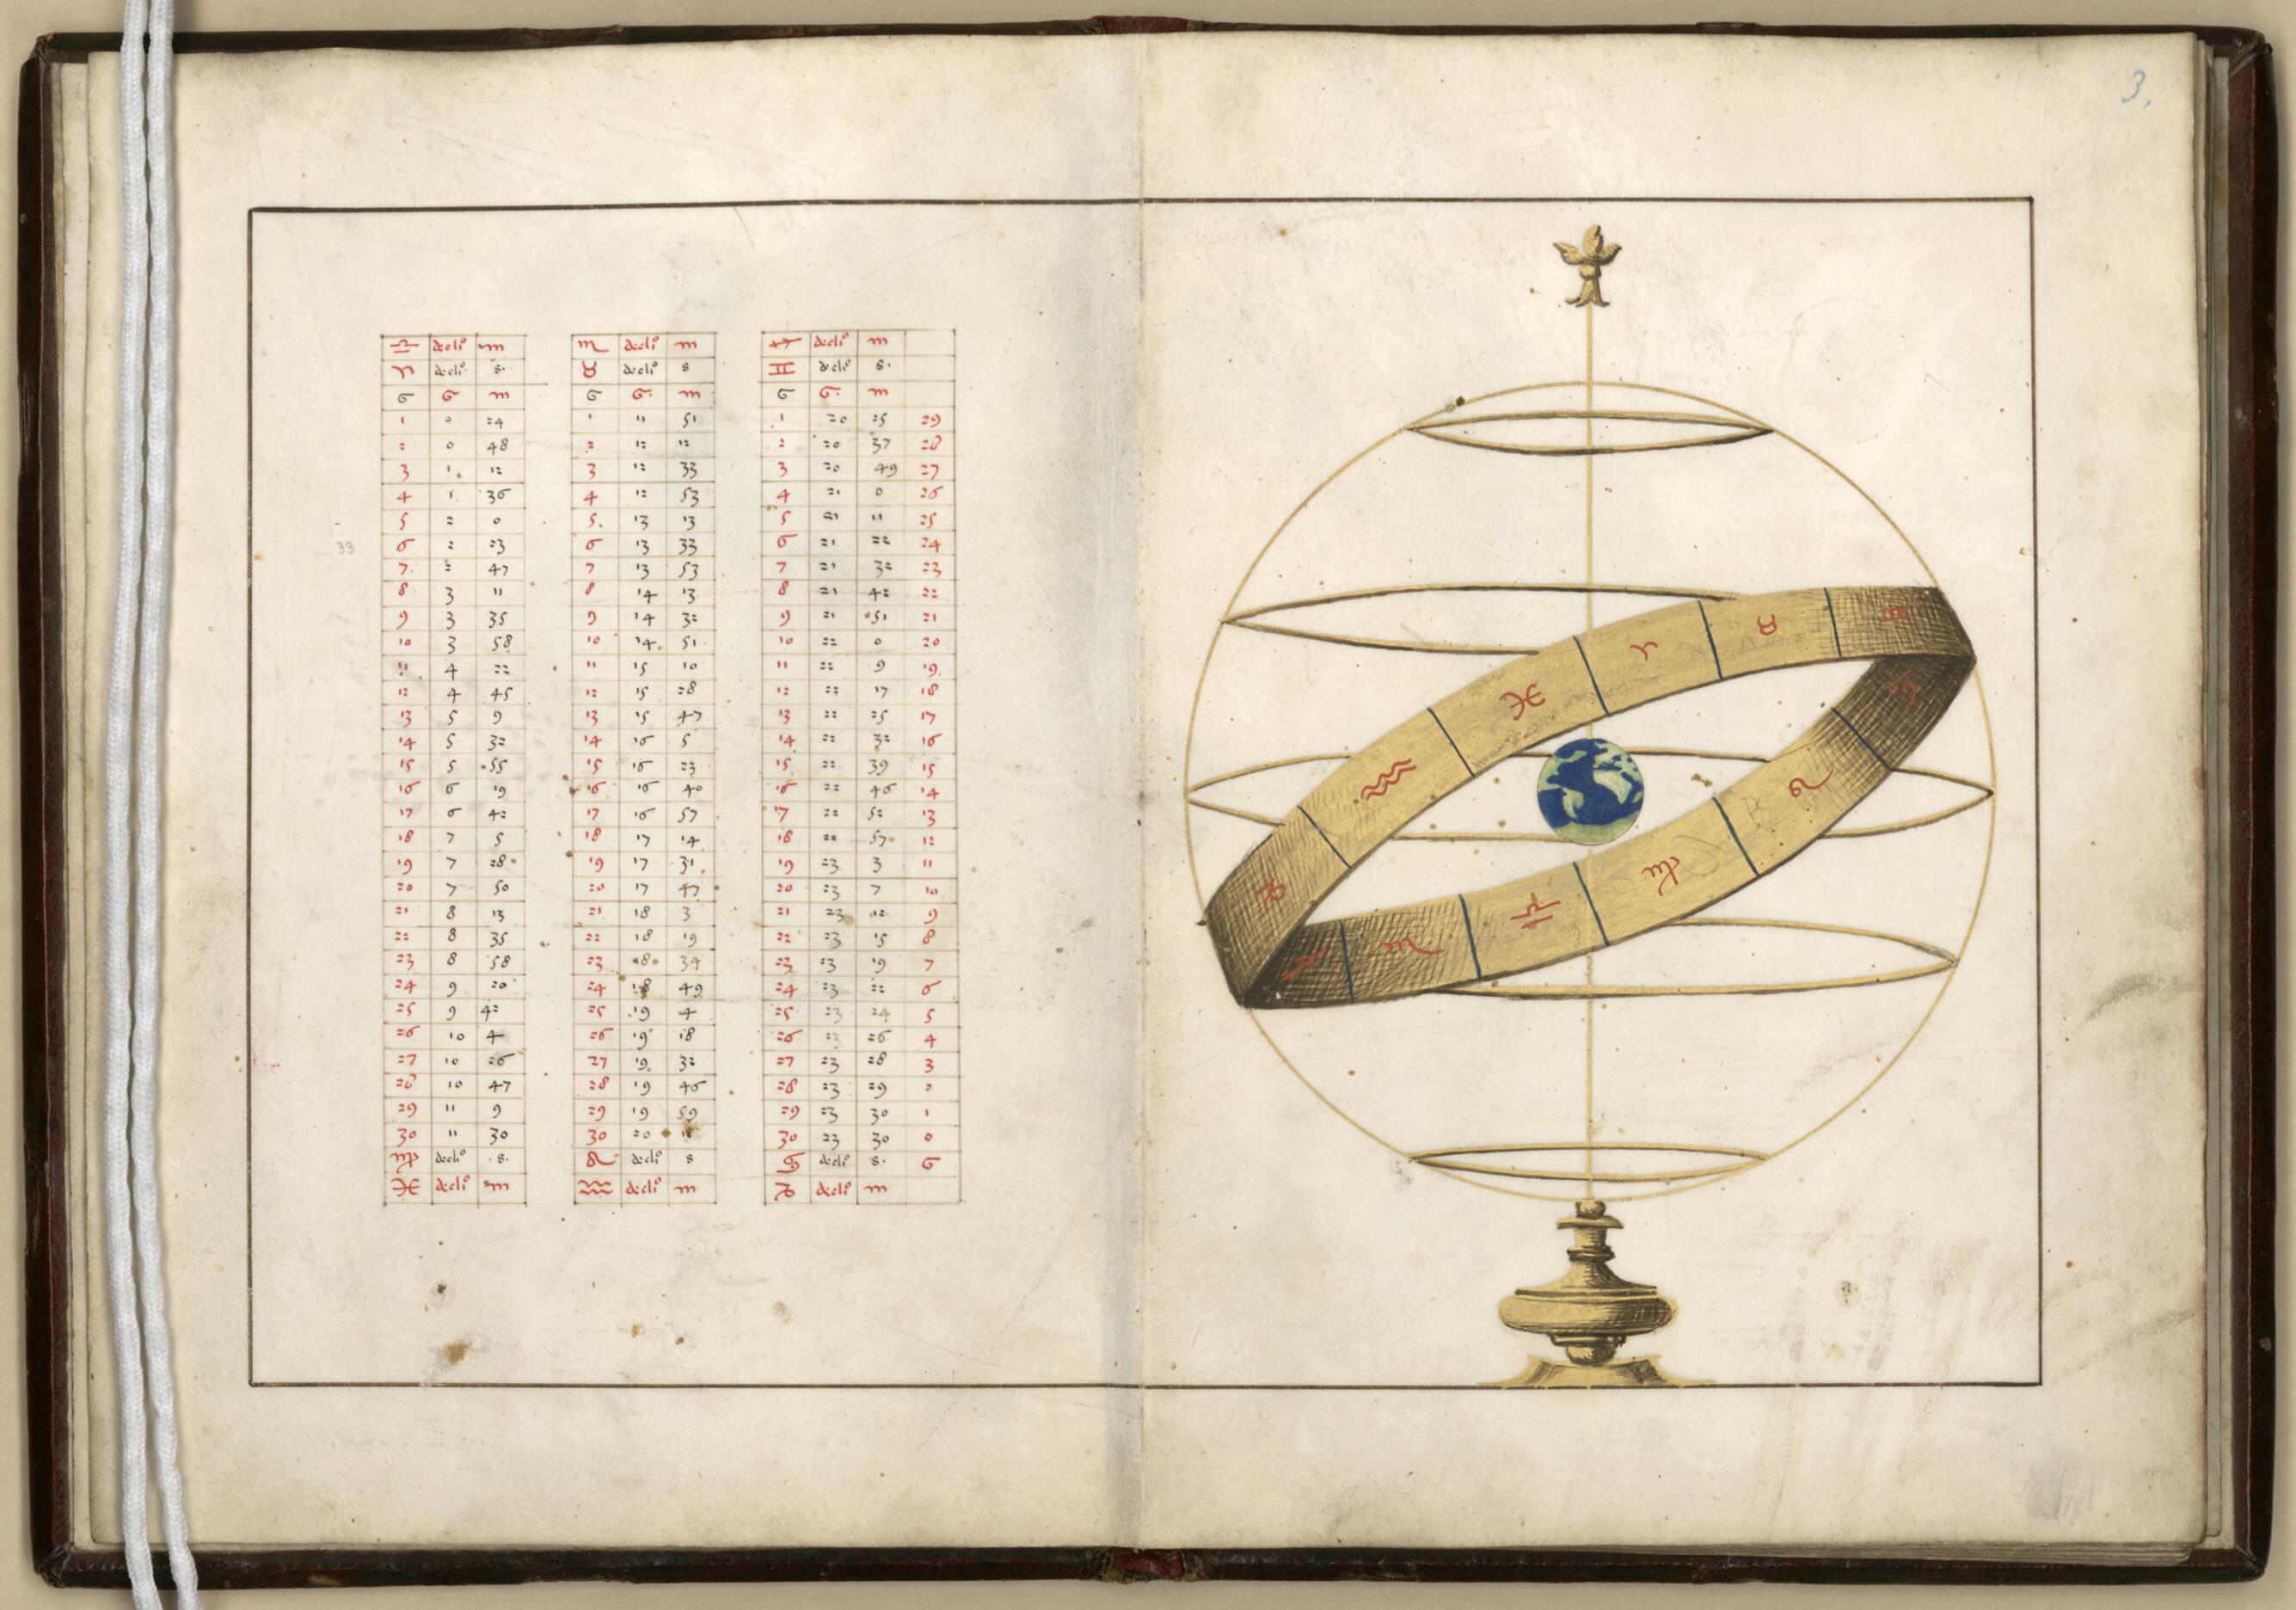 3.
♎ decli° m ♏ decli° m ♐ decli° m
♈ decli° s. ♉ decli° s ♊ decli° s.
G G m G G. m G G. m
1 0 24 1 11 51 1 20 25 29
2 0 48 2 12 12 2 20 37 28
3 1 12 3 12 33 3 20 49 27
4 1 36 4 12 53 4 21 0 26
5 2 0 5 13 13 5 21 11 25
6 2 23 6 13 33 6 21 22 24
7 2 47 7 13 53 7 21 32 23
8 3 11 8 14 13 8 21 42 22
9 3 35 9 14 32 9 21 51 21
10 3 58 10 14 51 10 22 0 20
11 4 22 11 15 10 11 22 9 19
12 4 45 12 15 28 12 22 17 18
13 5 9 13 15 47 13 22 25 17
14 5 32 14 16 5 14 22 32 16
15 5 55 15 16 23 15 22 39 15
16 6 19 16 16 40 16 22 46 14
17 6 42 17 16 57 17 22 52 13
18 7 5 18 17 14 18 22 57 12
19 7 28 19 17 31 19 23 3 11
20 7 50 20 17 47 20 23 7 10
21 8 13 21 18 3 21 23 12 9
22 8 35 22 18 19 22 23 15 8
23 8 58 23 18 34 23 23 19 7
24 9 20 24 18 49 24 23 22 6
25 9 42 25 19 4 25 23 24 5
26 10 4 26 19 18 26 23 26 4
27 10 26 27 19 32 27 23 28 3
28 10 47 28 19 46 28 23 29 2
29 11 9 29 19 59 29 23 30 1
30 11 30 30 20 30 23 30 0
♍ decli° s. ♌ decli° s ♋ decli° s. G
♓ decli° m ♒ decli° m ♑ decli° m
33
♑ ♒ ♓ ♈ ♉ ♊
♐ ♏ ♎ ♍ ♌ ♋